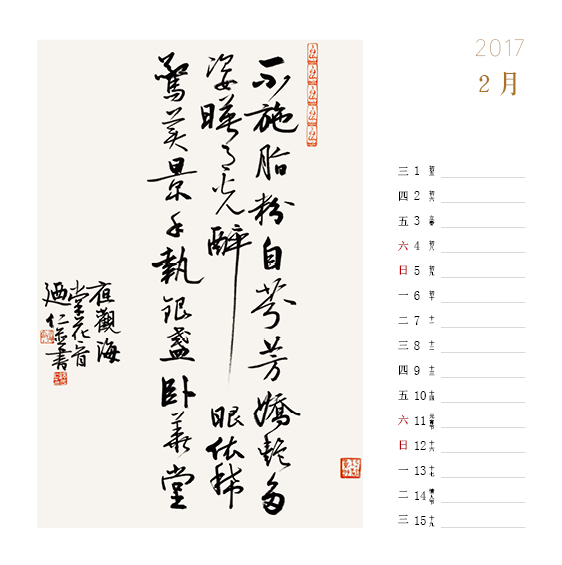 2017
2 月
不施脂粉自芬芳嬌艷多
姿暎月光醉眼依稀
驚美景手執銀盞卧華堂
夜觀海
棠花
迺仁並書
三 1 初五
四 2 初六
五 3 立春
六 4 初八
日 5 初九
一 6 初十
二 7 十一
三 8 十二
四 9 十三
五 10 十四
六 11 元宵节
日 12 十六
一 13 十七
二 14 情人节
三 15 十九